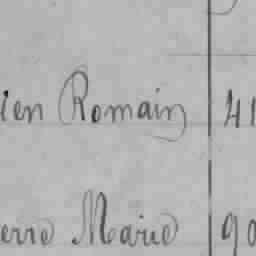 ien Romain 41
erre Marie 90